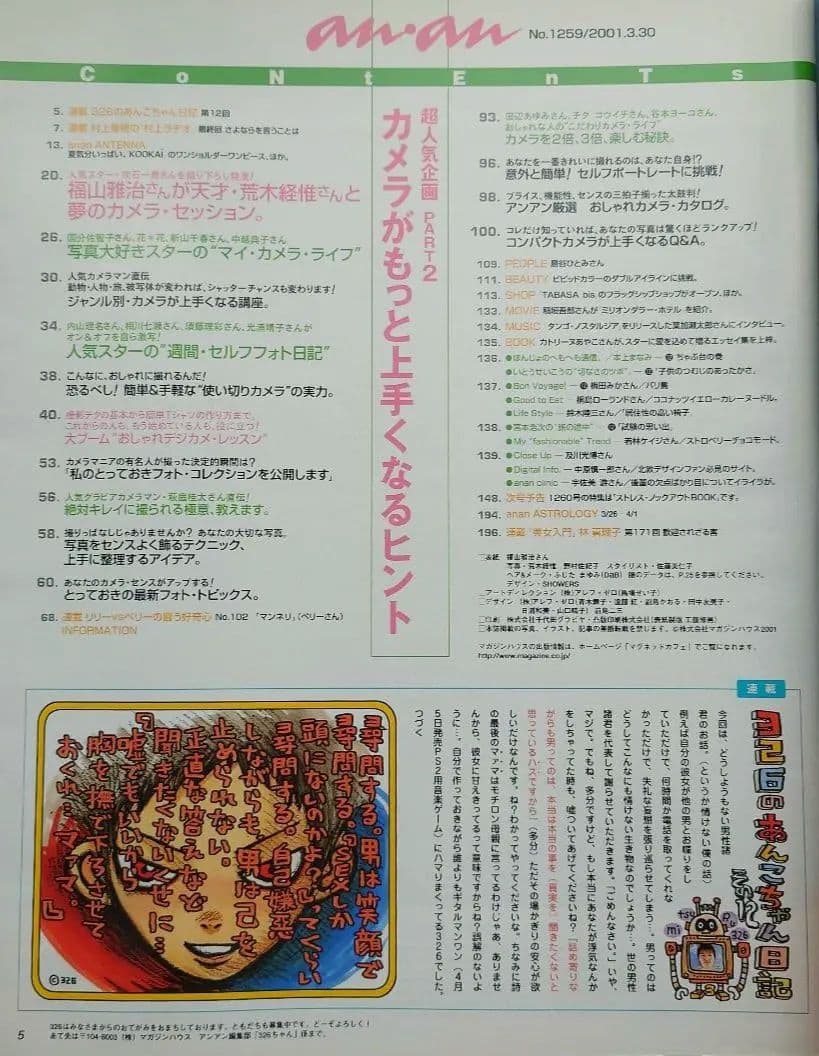 an・an No.1259/2001.3.30
CoNtEnTs
5. 連載 326のあんこちゃん日記 第12回
7. 連載 村上春樹の“村上ラヂオ” 最終回 さよならを言うことは
13. anan ANTENNA
夏気分いっぱい、KOOKAÏ のワンショルダーワンピース、ほか。
20.
福山雅治さんが天才・荒木経惟さんと
夢のカメラ・セッション。
26. 国分佐智子さん、花＊花、新山千春さん、中越典子さん
写真大好きスターの“マイ・カメラ・ライフ”
30. 人気カメラマン直伝
動物・人物・旅、被写体が変われば、シャッターチャンスも変わります!
ジャンル別・カメラが上手くなる講座。
34. 内山理名さん、相川七瀬さん、須藤理彩さん、光浦靖子さんが
オン&オフを自ら激写!
人気スターの“週間・セルフフォト日記”
38. こんなに、おしゃれに撮れるんだ!
恐るべし! 簡単&手軽な“使い切りカメラ”の実力。
40. 撮影テクの基本から即席Tシャツの作り方まで。
これからの人も、もう始めている人も、役に立つ!
大ブーム“おしゃれデジカメ・レッスン”
53. カメラマニアの有名人が撮った決定的瞬間は?
「私のとっておきフォト・コレクションを公開します」
56. 人気グラビアカメラマン・萩庭桂太さん直伝!
絶対キレイに撮られる極意、教えます。
58. 撮りっぱなしじゃありませんか? あなたの大切な写真。
写真をセンスよく飾るテクニック、
上手に整理するアイデア。
60. あなたのカメラ・センスがアップする!
とっておきの最新フォト・トピックス。
68. 連載 リリーvsベリーの買う好奇心 No.102 「マンネリ」(ベリーさん)
INFORMATION
超人気企画 PART2
カメラがもっと上手くなるヒント
93. 田辺あゆみさん、チダ コウイチさん、谷本ヨーコさん、
おしゃれな人の“こだわりカメラ・ライフ”
カメラを2倍、3倍、楽しむ秘訣。
96. あなたを一番きれいに撮れるのは、あなた自身!?
意外と簡単! セルフポートレートに挑戦!
98. プライス、機能性、センスの三拍子揃った太鼓判!
アンアン厳選 おしゃれカメラ・カタログ。
100. コレだけ知っていれば、あなたの写真は驚くほどランクアップ!
コンパクトカメラが上手くなるQ&A。
109. PEOPLE 島谷ひとみさん
111. BEAUTY ビビッドカラーのダブルアイラインに挑戦。
113. SHOP TABASA bis のフラッグシップショップがオープン、ほか。
133. MOVIE 稲垣吾郎さんが『ミリオンダラー・ホテル』を紹介。
134. MUSIC 『タンゴ・ノスタルジア』をリリースした葉加瀬太郎さんにインタビュー。
135. BOOK カトリーヌあやこさんが、スターに愛を込めて贈るエッセイ集を上梓。
136. ●ほんじょのへもへも通信。／本上まなみ ー ちゃぶ台の巻
●いとうせいこうの“切なさのツボ” ー 「子供のつむじのあったかさ」
137. ●Bon Voyage! ー 梅田みかさん／パリ篇
●Good to Eat ー 桐島ローランドさん／ココナッツイエローカレーヌードル。
●Life Style ー 鈴木陸三さん／「居住性の高い椅子」
138. ●宮本浩次の“旅の途中” ー 「試験の思い出」
●My “fashionable” Trend ー 若林ケイジさん／ストロベリーチョコモード。
139. ●Close Up ー 及川光博さん
●Digital Info. ー 中原慎一郎さん／北欧デザインファン必見のサイト。
●anan clinic ー 宇佐美 游さん／後輩の欠点ばかり目についてイライラが。
148. 次号予告 1260号の特集は“ストレス・ノックアウトBOOK”です。
194. anan ASTROLOGY 3/26 4/1
196. 連載 “美女入門” 林 真理子 第171回 歓迎されざる客
表紙 福山雅治さん
写真・荒木経惟 野村佐紀子 スタイリスト・佐藤美仁子
ヘア&メーク・ふじた まゆみ(DaB) 服のデータは、P.25を参照してください。
デザイン・SHOWERS
アートディレクション (株)アレフ・ゼロ
日浦和美・山口暁子・
本誌掲載の写真、イラスト、記事の無断転載を禁じます。©株式会社マガジンハウス2001
マガジンハウスの出版情報は、ホームページ「マグネットカフェ」でご覧になれます。
http://www.magazine.co.jp/
連載
326のあんこちゃん日記
これ
mi tsu Pu 326
今回は、どうしようもない男性諸
君のお話。(というか情けない僕の話)
例えば自分の彼女が他の男とお喋りをし
ていただけで、何時間か電話を取ってくれな
かっただけで、失礼な妄想を張り巡らせてしまう…。男っての
はどうしてこんなにも情けない生き物なのでしょうか…。世の男性
諸君を代表して謝らせていただきます。「ごめんなさい。」いや、
マジで。でもね、多分ですけど、もし本当にあなたが浮気なんか
をしちゃってた時も、嘘ついてあげてくださいね?『詰め寄りな
がらも男ってのは、本当は本当の事を(真実を)聞きたくないと
思っているハズですから』(多分)ただその場かぎりの安心が欲
しいだけなんです。ね?わかってやってくださいな。ちなみに詩
の最後のママはモチロン母親に言ってるわけじゃあ、ありませ
んから。彼女に甘えきってるって意味ですからね?誤解のないよ
うに…。自分で作っておきながら誰よりもギタルマンワン(4月
5日発売PS2用音楽ゲーム)にハマりまくってる326でした。
つづく
尋問する。男は笑顔で
尋問する。「SEXしか
頭にないのかよ?」ってくらい
尋問する。自己嫌悪
しながらも、男は己を
止められない。
正直な答えなど
聞きたくないくせに…
『嘘でもいいから
胸を撫で下ろさせて
おくれ…ママ。』
©326
326はみなさまからのおてがみをおまちしております。ともだちも募集中です。どーぞよろしく!
あて先は〒104-8003(株)マガジンハウス アンアン編集部「326ちゃん」係まで。
5